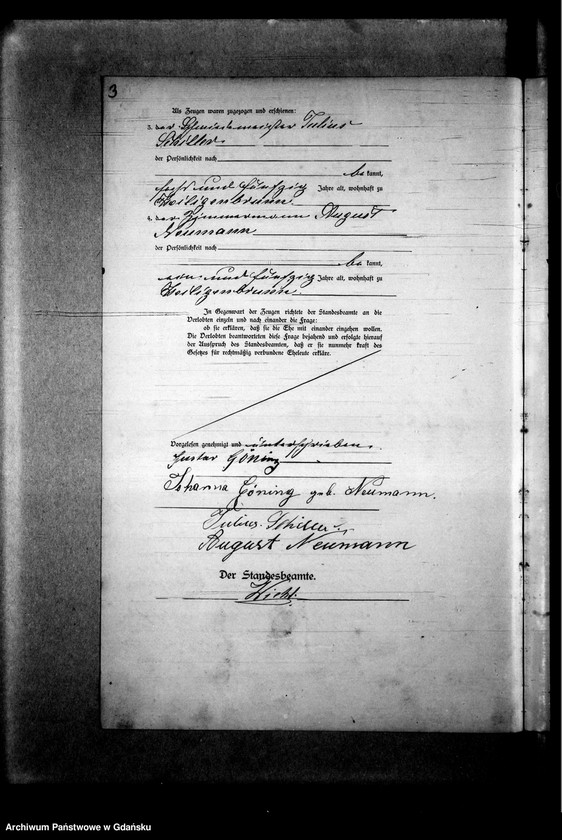 3
Als Zeugen waren zugezogen und erschienen:
3. der Schmiedemeister Julius
Schiller
der Persönlichkeit nach
be kannt,
sechs und fünfzig Jahre alt, wohnhaft zu
Heiligenbrunn
4. der Zimmermann August
Neumann
der Persönlichkeit nach
be kannt,
und fünfzig Jahre alt, wohnhaft zu
Heiligenbrunn.
In Gegenwart der Zeugen richtete der Standesbeamte an die
Verlobten einzeln und nach einander die Frage:
ob sie erklären, daß sie die Ehe mit einander eingehen wollen.
Die Verlobten beantworteten diese Frage bejahend und erfolgte hierauf
der Ausspruch des Standesbeamten, daß er sie nunmehr kraft des
Gesetzes für rechtmäßig verbundene Eheleute erkläre.
Vorgelesen genehmigt und unterschrieben.
Gustav Göning
Johanna Göning geb. Neumann.
Julius Schiller
August Neumann
Der Standesbeamte.
Archiwum Państwowe w Gdańsku